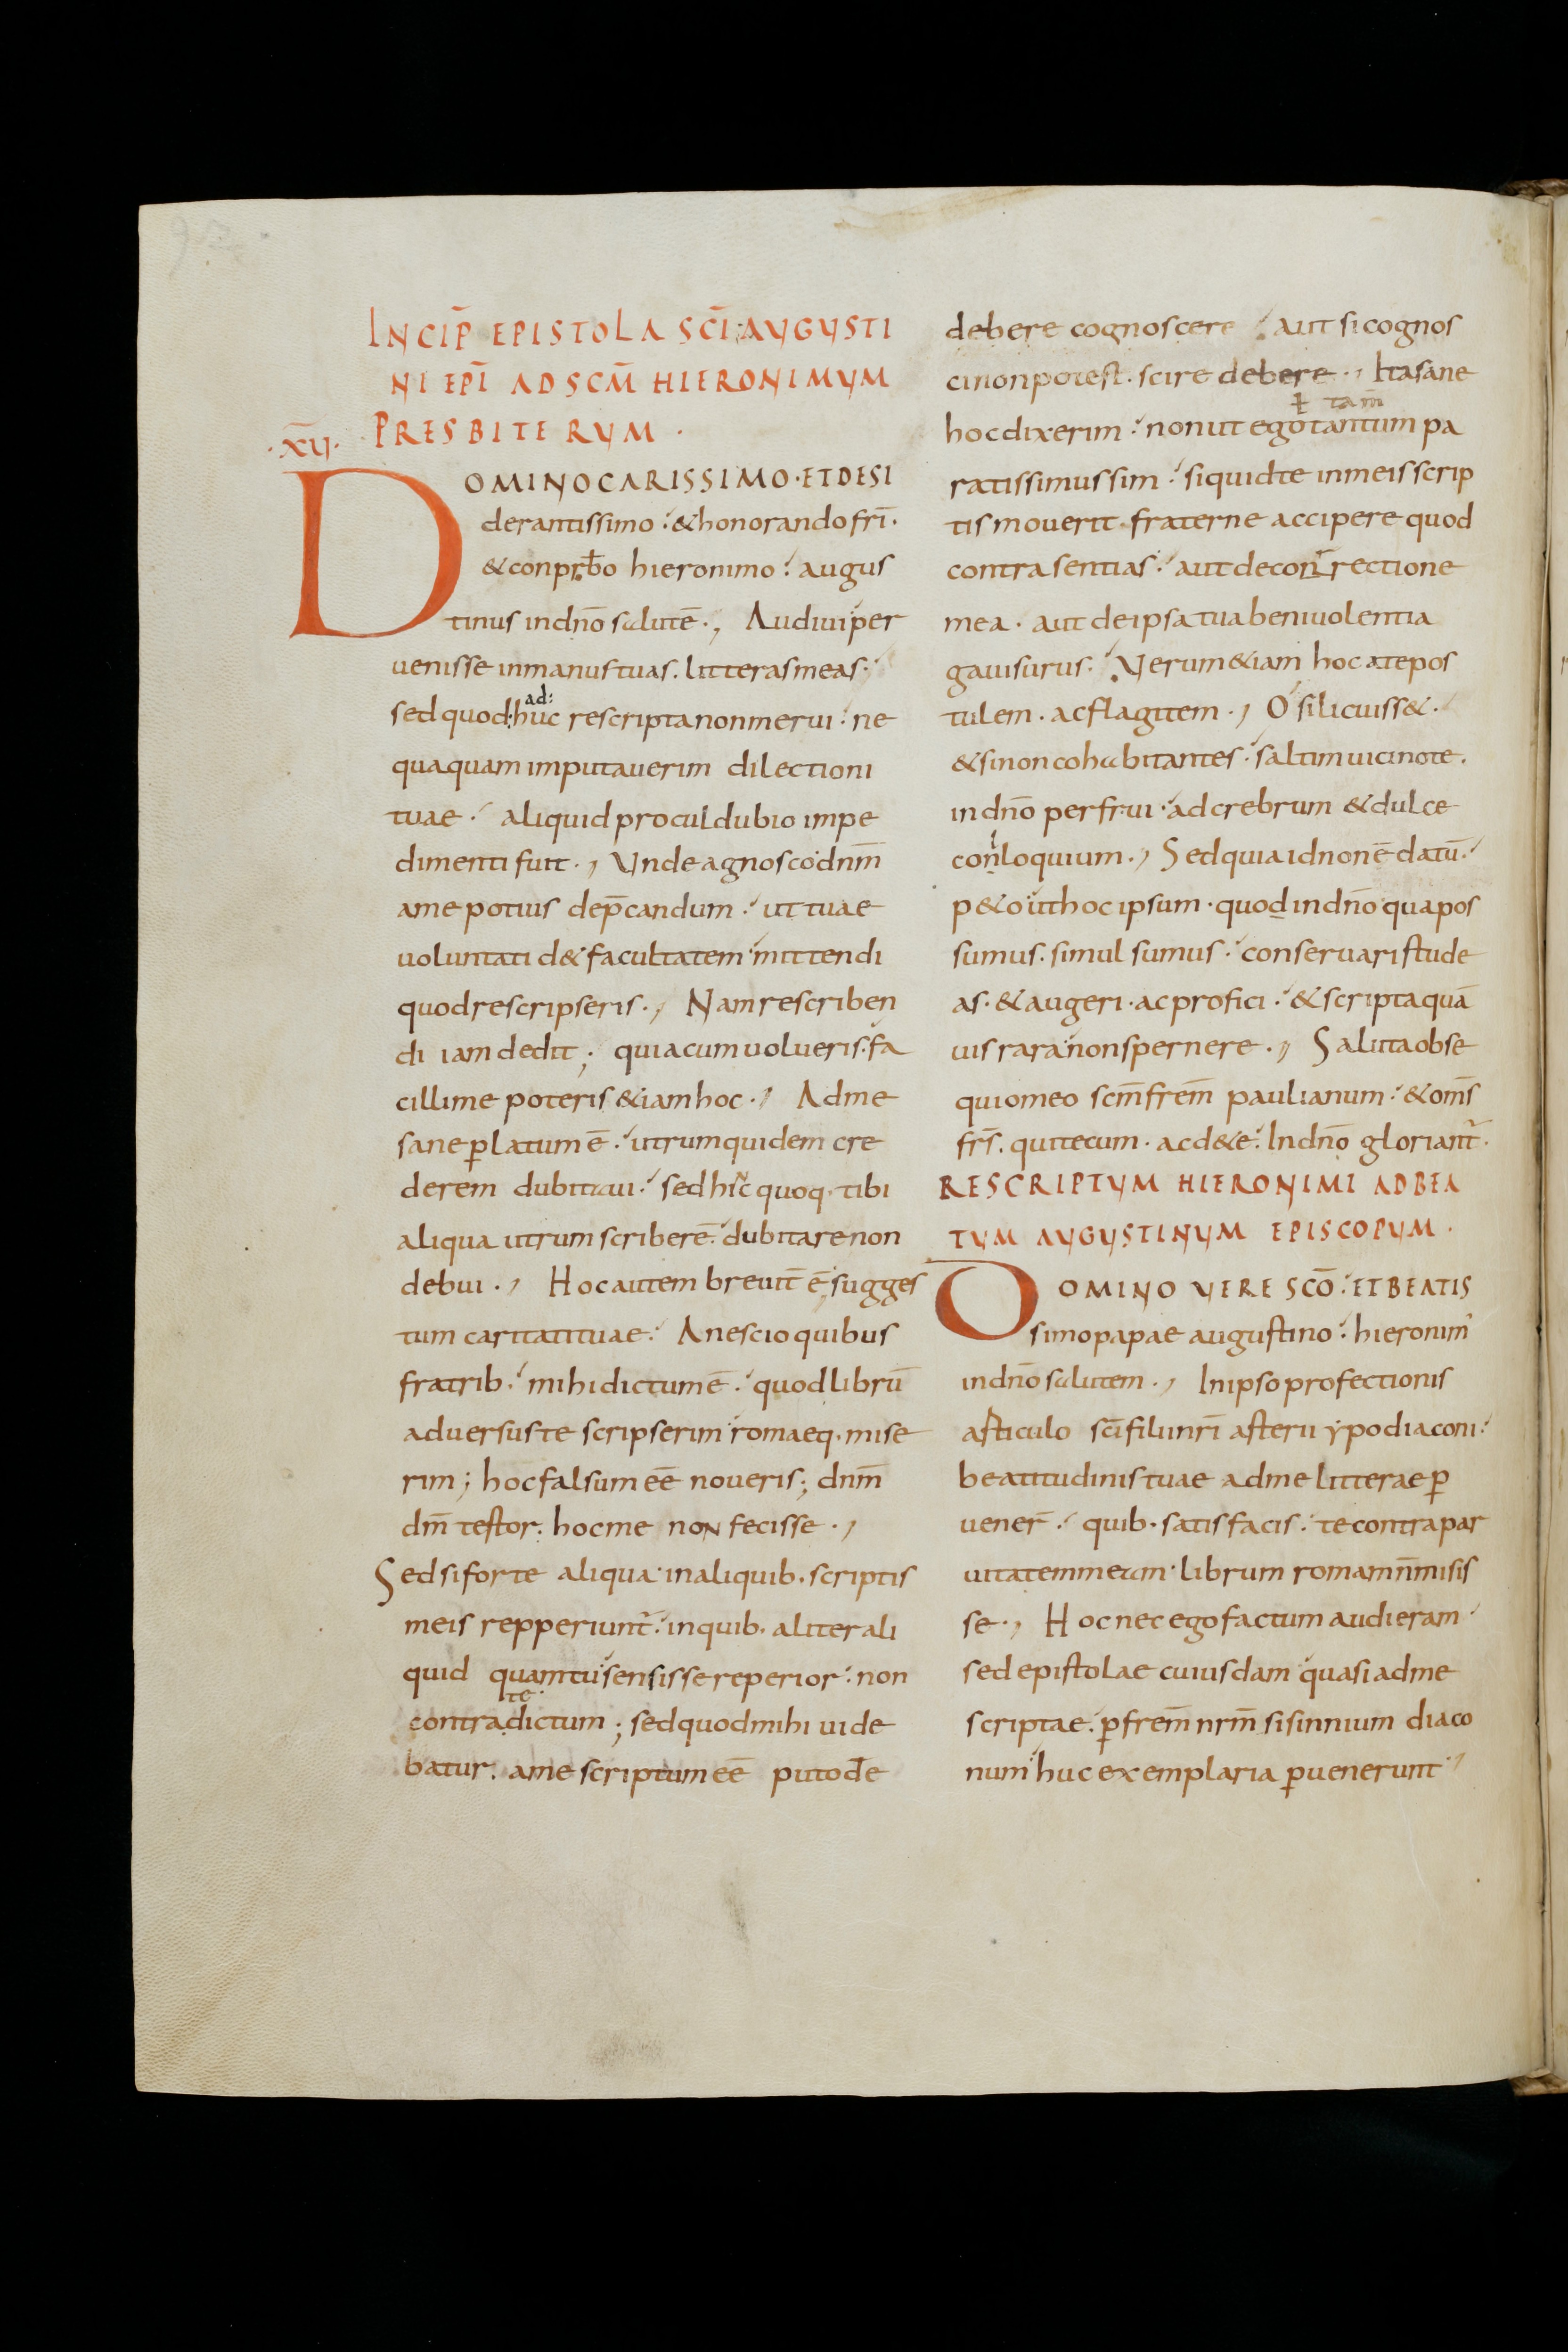 INCIP̄ EPISTOLA SC̄I AUGUSTI
NI EP̄I AD SCM̄ HIERONIMUM
PRESBITERUM ·
·X̄V·
DOMINO CARISSIMO · ET DESI
derantissimo : & honorando frī ·
& conprb̄o hieronimo : augus
tinus in dnō salutē ·, Audiui per
uenisse in manus tuas . litteras meas ·
ad:
sed quod huc rescripta non merui : ne
quaquam imputauerim dilectioni
tuae · aliquid procul dubio impe
dimenti fuit ·, Unde agnosco dnm̄
a me potius dep̄candum : ut tuae
uoluntati d& facultatem mittendi
quod rescripseris ·, Nam rescriben
di iam dedit ; quia cum uolueris . fa
cillime poteris &iam hoc ·, Ad me
sane p̲latum ē : utrum quidem cre
derem dubitaui : sed hic quoq· tibi
aliqua utrum scriberē dubitare non
debui ·, Hoc autem breuit̄ ē sugges
tum caritati tuae : A nescio quibus
fratrib· mihi dictum ē : quod librū
aduersus te scripserim romaeq· mise
rim ; hoc falsum eē noueris ; dnm̄
dm̄ testor . hoc me non fecisse ·,
Sed si forte aliqua in aliquib· scriptis
meis repperiunt̄ : in quib· aliter ali
quid quam tu sensisse reperior : non
te
contra dictum ; sed quod mihi uide
batur . a me scriptum eē puto de
debere cognoscere : aut si cognos
ci non potest · scire debere ·, Ita sane
ł tam̄
hoc dixerim : non ut ego tantum pa
ratissimus sim : si quid te in meis scrip
tis mouerit fraterne accipere quod
contra sentias : aut de conrrectione
mea · aut de ipsa tua beniuolentia
gauisurus : Uerum &iam hoc a te pos
tulem · ac flagitem ·, O si licuiss& ·
& si non cohabitantes · saltim uicino te ·
in dnō perfrui · ad crebrum & dulce
conloquium ·, Sed quia id non ē datū ·
p&o ut hoc ipsum · quod in dnō qua pos
sumus . simul sumus : conseruari stude
as · & augeri · ac profici : & scripta quā
uis rara non spernere ·, Saluta obse
quio meo scm̄ frem̄ paulianum : & oms̄
frs̄ . qui tecum · ac de te In dnō gloriant̄ ·
RESCRIPTUM HIERONIMI AD BEA
TUM AUGUSTINUM EPISCOPUM ·
DOMINO UERE SCŌ : ET BEATIS
simo papae augustino : hieronim'
in dnō salutem ·, In ipso profectionis
articulo sc̄i filii nrī asterii ypodiaconi :
beatitudinis tuae ad me litterae p̲
uener̄ : quib· satisfacis : te contra par
uitatem meam · librum romam n̄ misis
se ·, Hoc nec ego factum audieram
sed epistolae cuiusdam quasi ad me
scriptae . p̲ frem̄ nrm̄ sisinnium diaco
num huc exemplaria p̲uenerunt